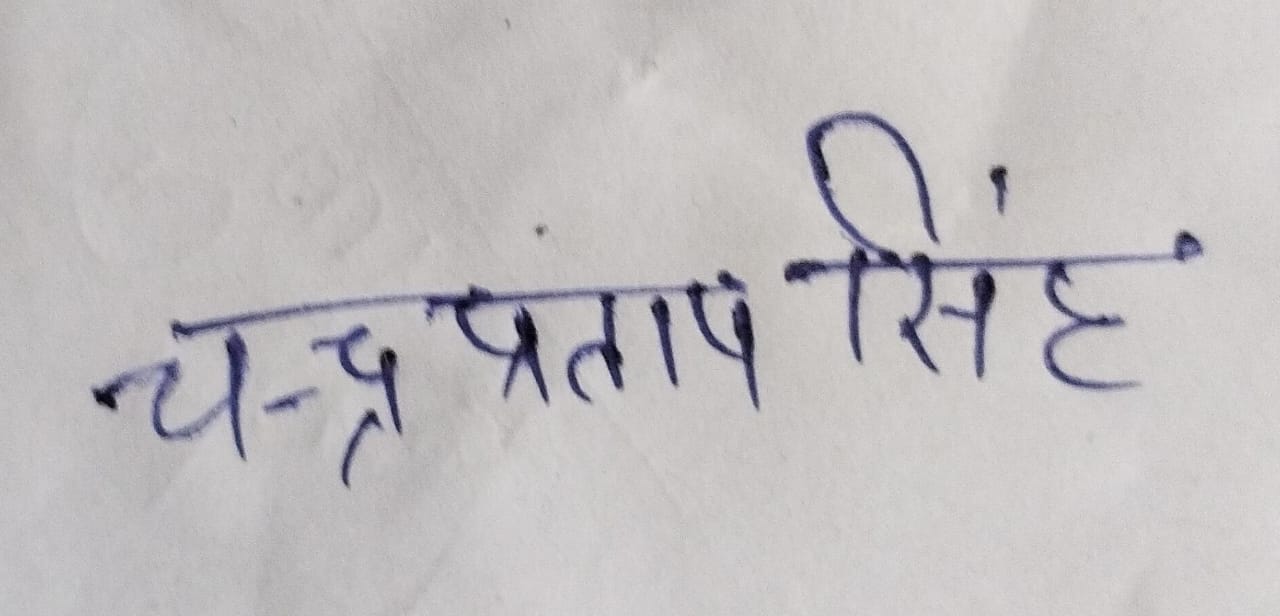 चन्द्र प्रताप सिंह